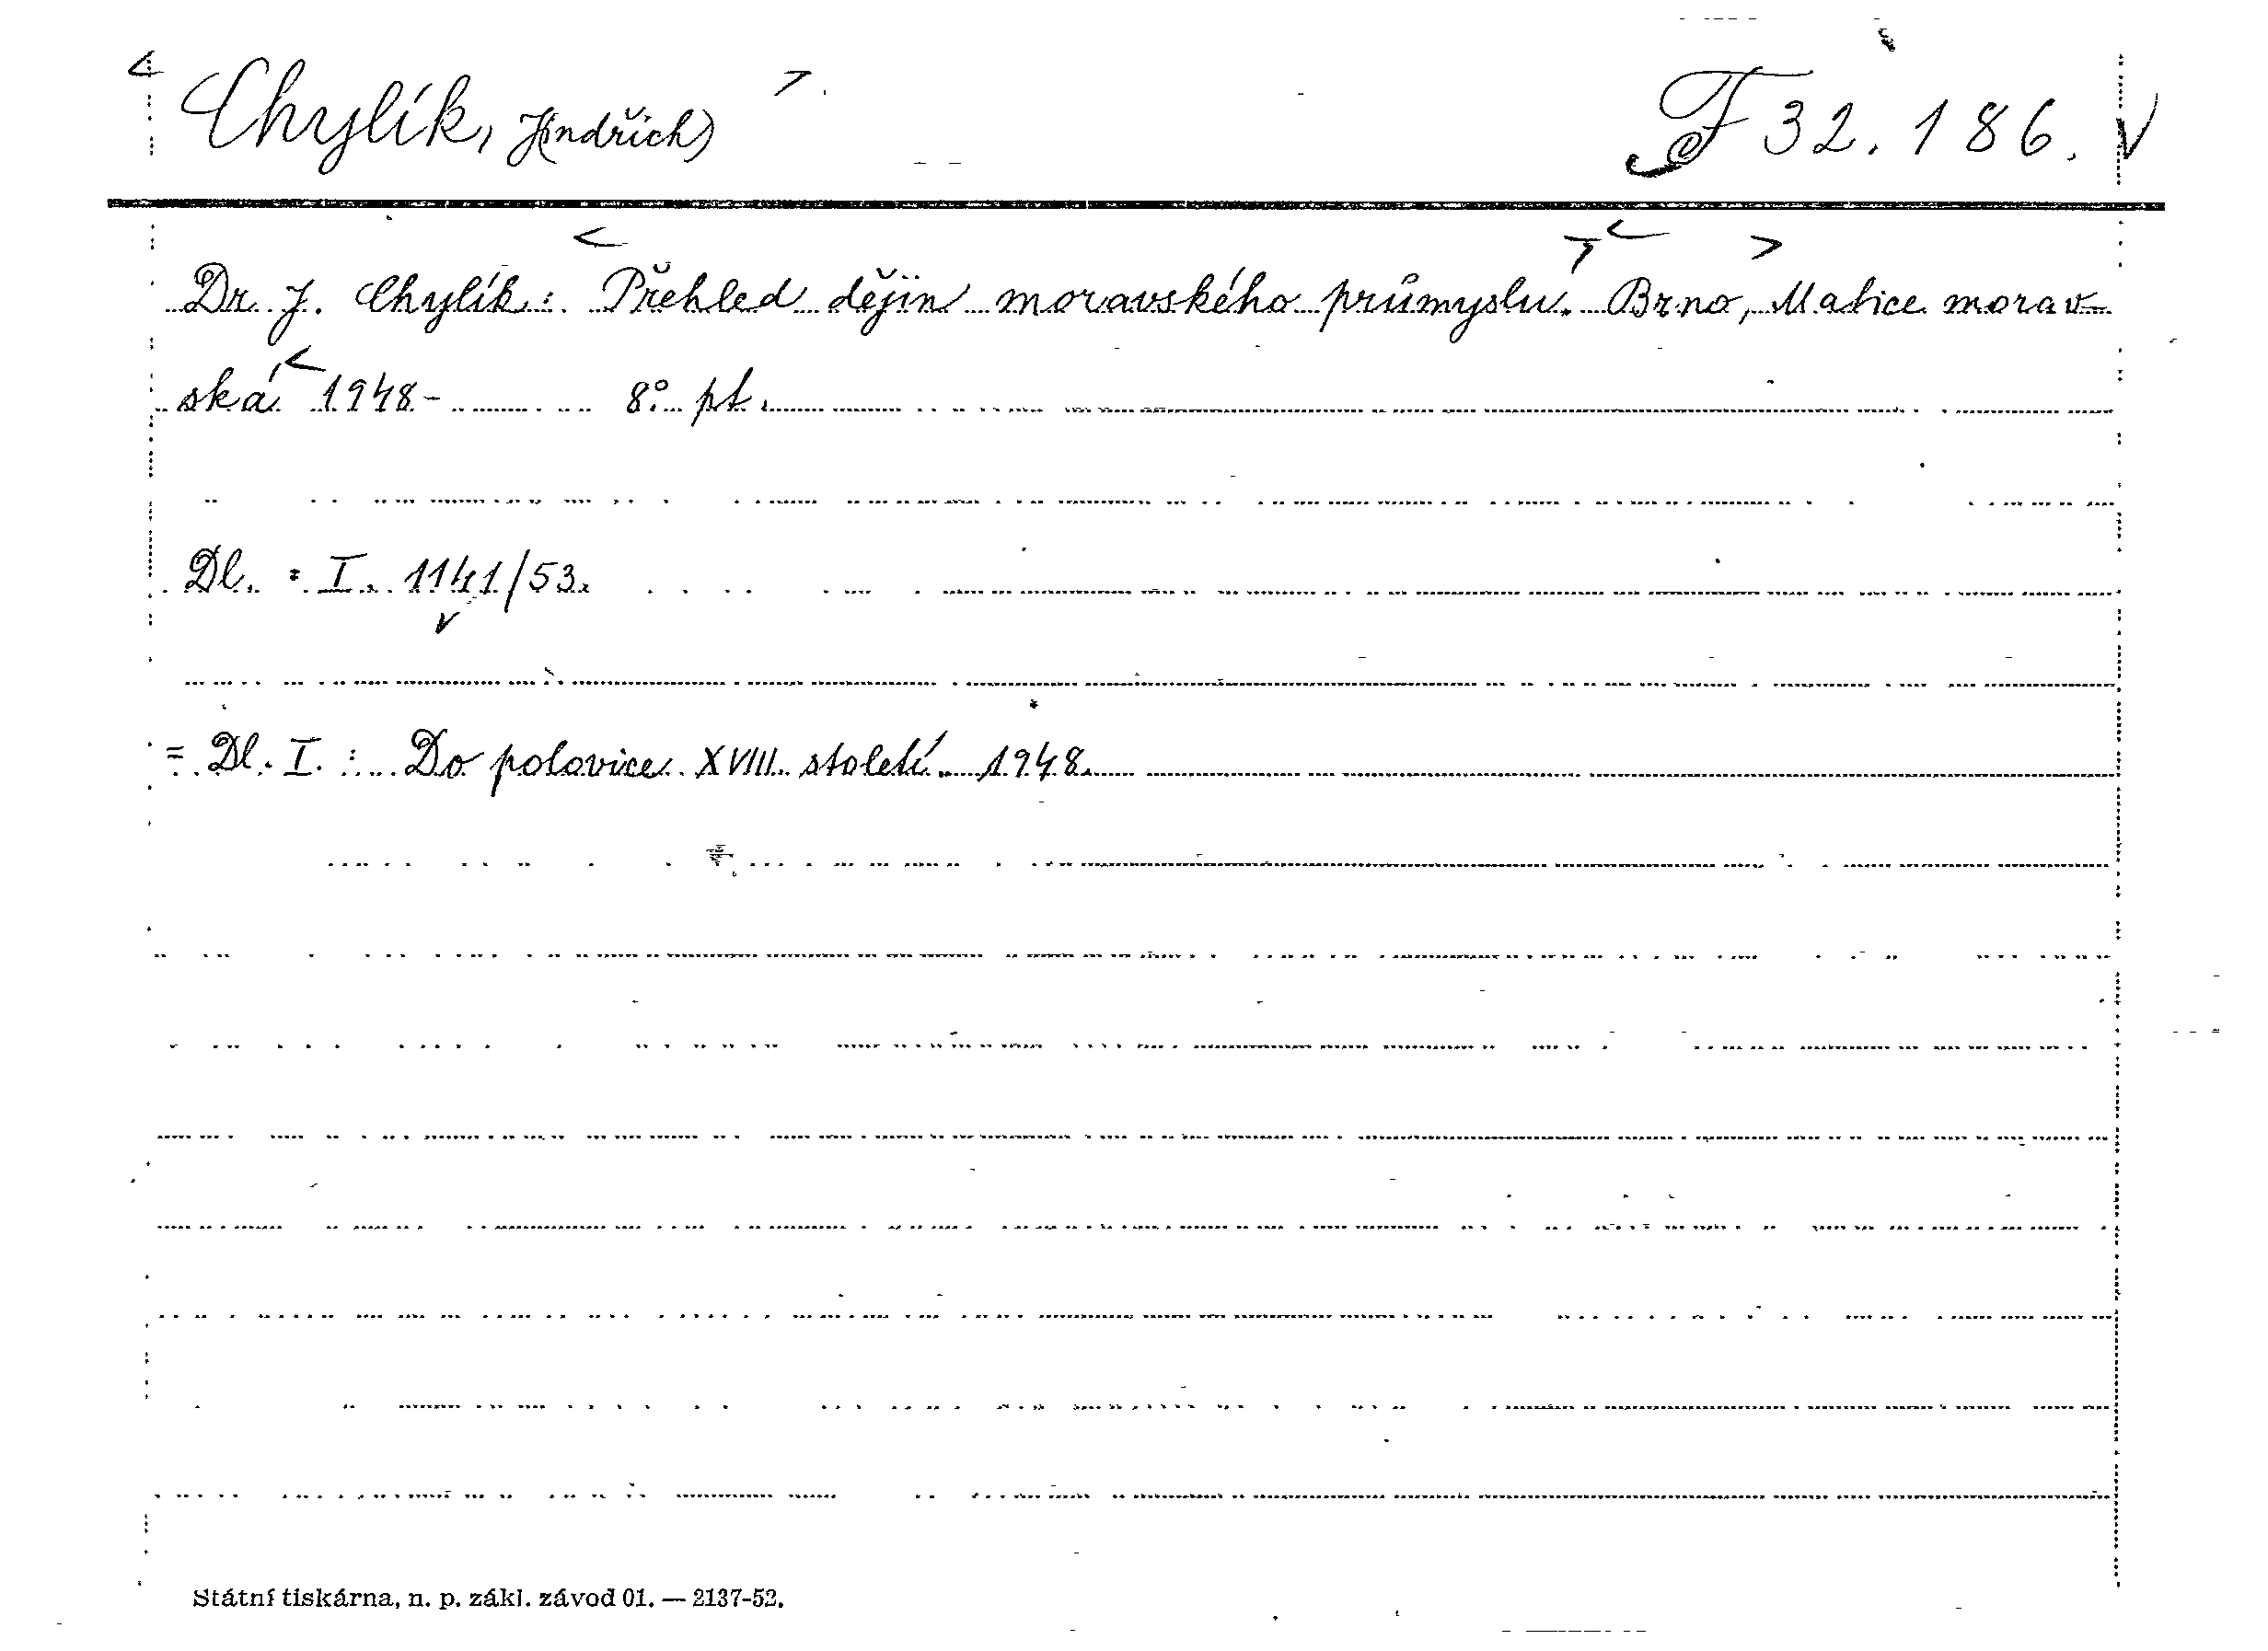 Chylík, J(indřich) F 32.186.
Dr. J. Chylík: Přehled dějin moravského průmyslu. Brno, Matice morav-
ská 1948- 8° pt.
Dl. : I. 1141/53.
= Dl. I. : Do polovice XVIII. století. 1948.
Státní tiskárna, n. p. zákl. závod 01. — 2137-52.